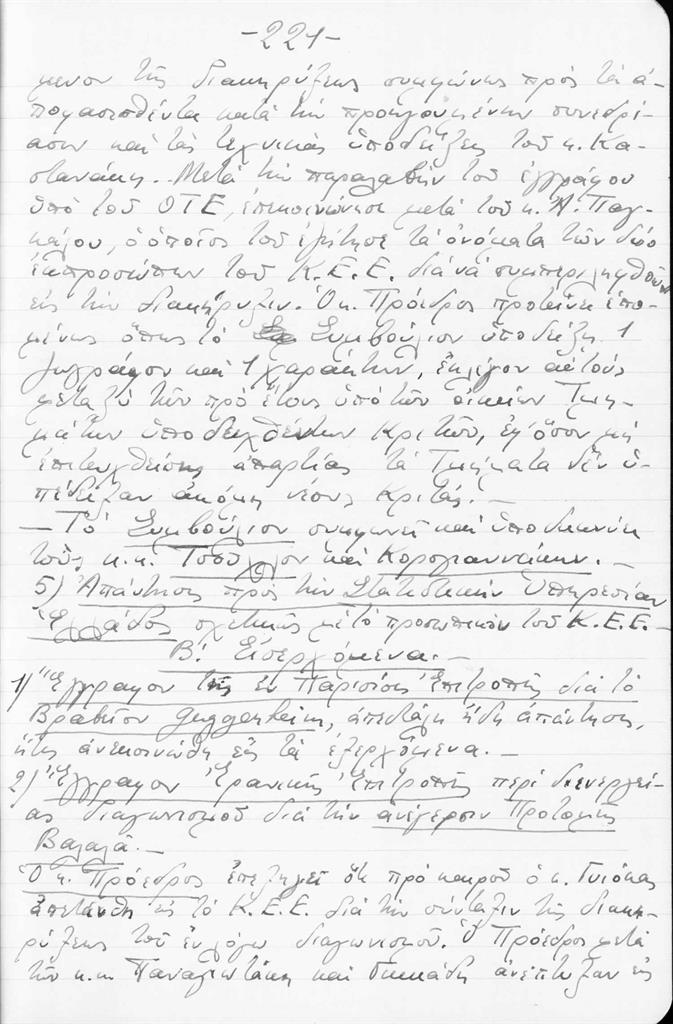 -221-
μενον τῆς διακηρύξεως συμφώνως πρὸς τὰ ἀ-
ποφασισθέντα κατὰ τὴν προηγουμένην συνεδρί-
ασιν καὶ τὰς τεχνικὰς ὑποδείξεις τοῦ κ. Κα-
στανάκη.. Μετὰ τὴν παραλαβὴν τοῦ ἐγγράφου
ὑπὸ τοῦ ΟΤΕ, ἐπεκοινώνησε μετὰ τοῦ κ. Ἀ. Παγ-
κάλου, ὁ ὁποῖος τοῦ ἐζήτησε τὰ ὀνόματα τῶν δύο
ἐκπροσώπων τοῦ Κ.Ε.Ε. διὰ νὰ συμπεριληφθοῦν
εἰς τὴν διακήρυξιν. Ὁ κ. Πρόεδρος προτείνει ἑπο-
μένως ὅπως τὸ Συμβούλιον ὑποδείξῃ 1
ζωγράφον καὶ 1 χαράκτην, ἐκλέγον αὐτοὺς
μεταξὺ τῶν πρὸ ἔτους ὑπὸ τῶν οἰκείων Τμη-
μάτων ὑποδειχθέντων Κριτῶν, ἐφ' ὅσον μὴ
ἐπιτευχθείσης ἀπαρτίας τὰ Τμήματα δὲν ὑ-
πέδειξαν ἀκόμη νέους Κριτάς. –
– Τὸ Συμβούλιον συμφωνεῖ καὶ ὑποδεικνύει
τοὺς κ.κ. καὶ Κορογιαννάκην. –
5) Ἀπάντησις πρὸς τὴν Στατιστικὴν Ὑπηρεσίαν
Ἑλλάδος σχετικῶς μὲ τὸ προσωπικὸν τοῦ Κ.Ε.Ε. –
Β! Εἰσερχόμενα. –
1) Ἔγγραφον τῆς ἐν Παρισίοις Ἐπιτροπῆς διὰ τὸ
Βραβεῖον Guggenheim, ἀπεστάλη ἤδη ἀπάντησις,
ἥτις ἀνεκοινώθη εἰς τὰ ἐξερχόμενα. –
2) Ἔγγραφον Ἐρανικῆς Ἐπιτροπῆς περὶ διενεργεί-
ας διαγωνισμοῦ διὰ τὴν ἀνέγερσιν Προτομῆς
Βαλαλᾶ. –
Ὁ κ. Πρόεδρος ἐπεξηγεῖ ὅτι πρὸ καιροῦ ὁ κ. Γκιόκας
ἀπετάνθη εἰς τὸ Κ.Ε.Ε. διὰ τὴν σύνταξιν τῆς διακη-
ρύξεως τοῦ ἐν λόγῳ διαγωνισμοῦ. Ὁ Πρόεδρος μετὰ
τῶν κ.κ. Παναγιωτάκη καὶ ἀνέπτυξαν εἰς